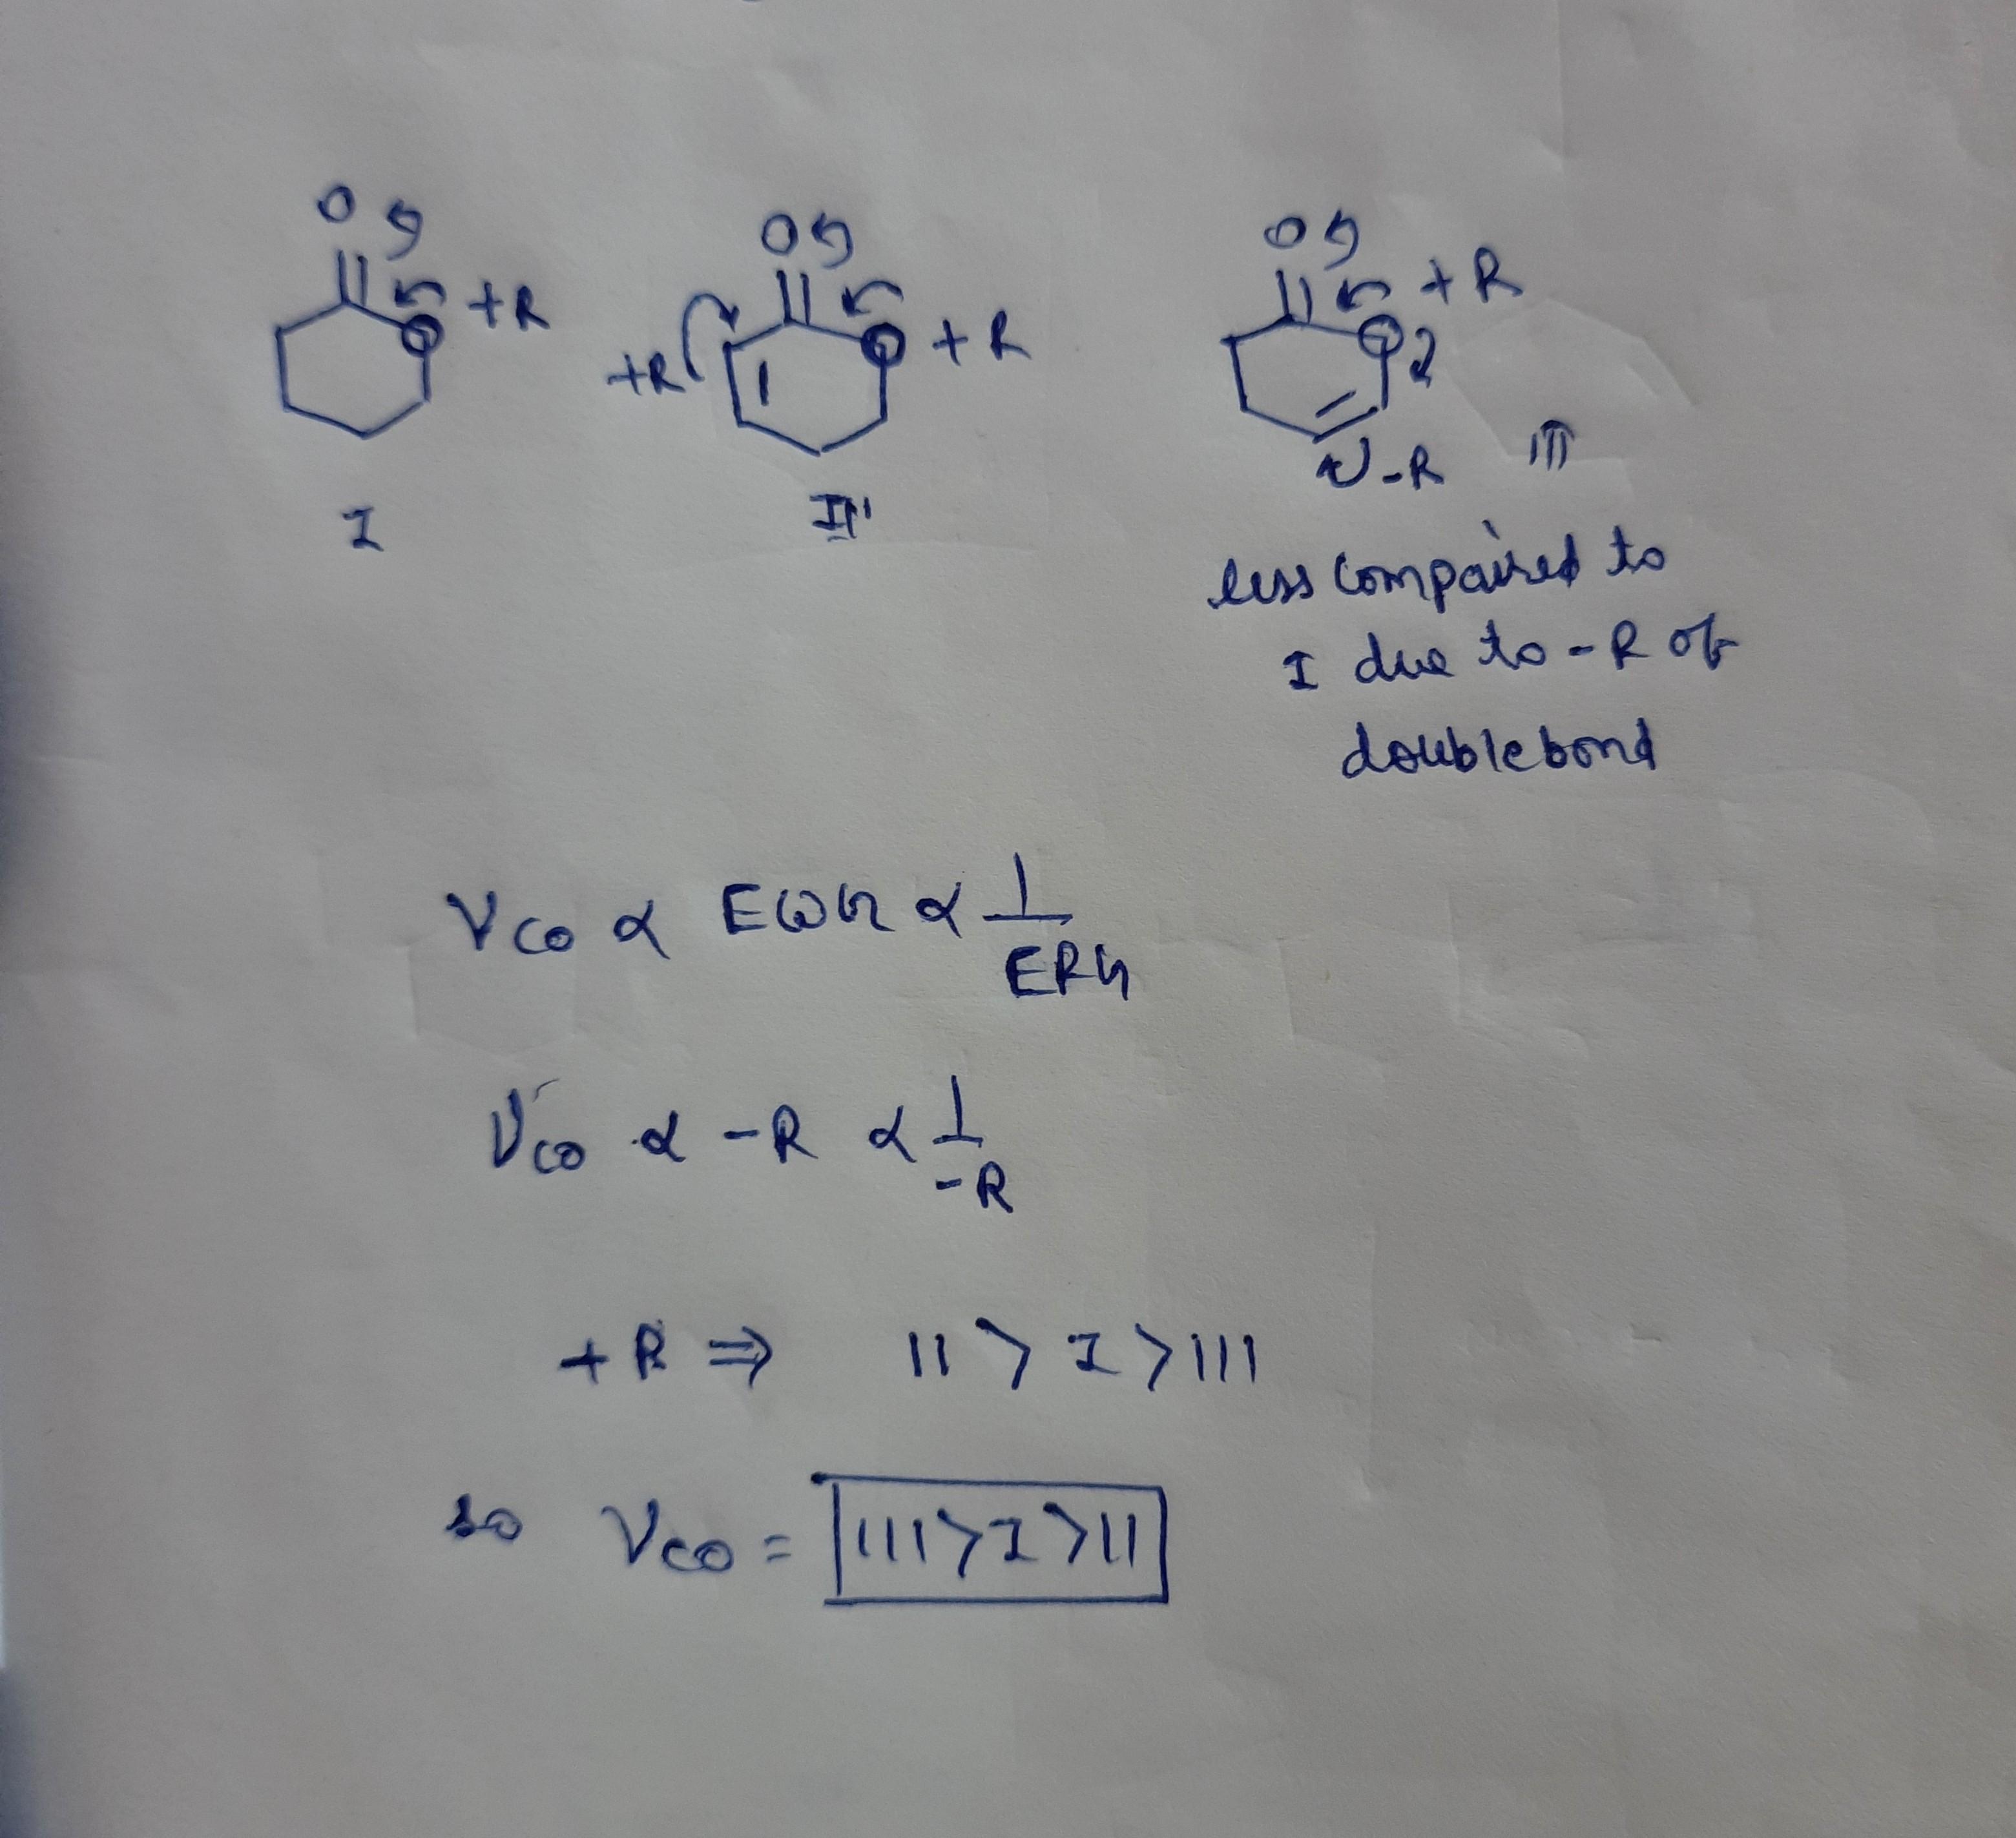 O
+R
I
O
+R
+R
II
O
+R
-R
III
less compaired to
I due to -R of
double bond
νco α EWG α 1/ERG
νco α -R α 1/-R
+R ⇒ II > I > III
so νco = III > I > II